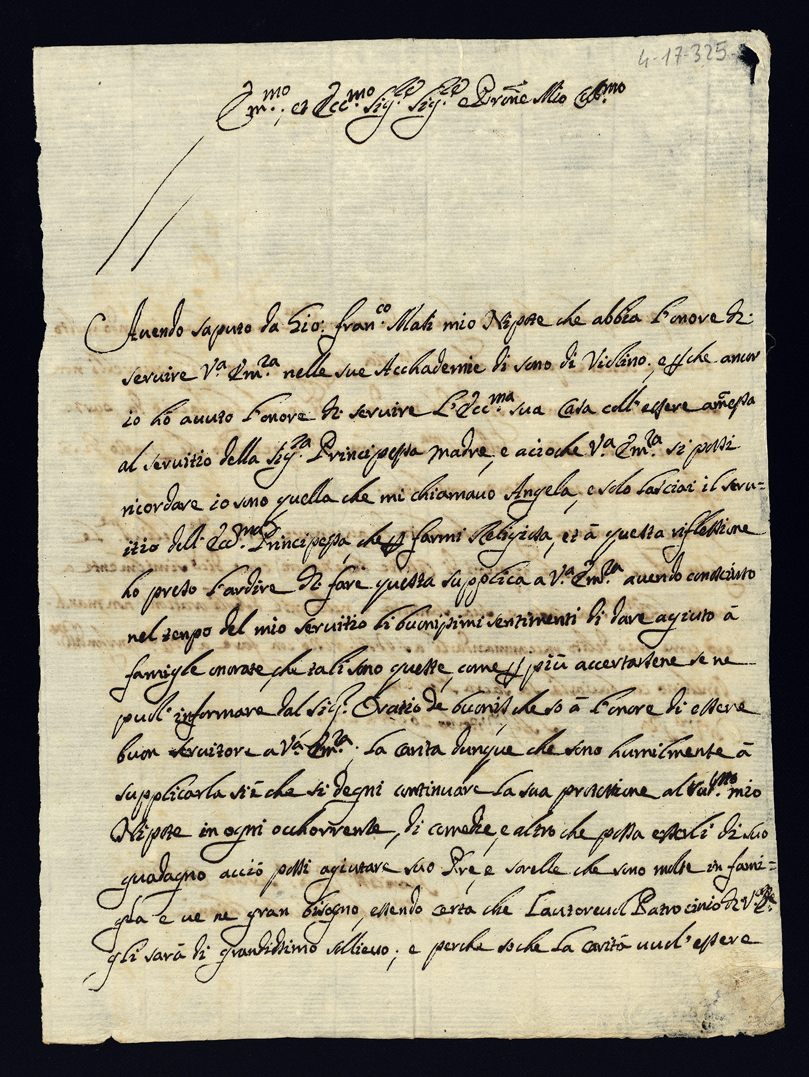 4-17-325
Em.mo et Ecc.mo Sig.re Sig.re e Prone Mio Col.mo
Auendo saputo da Gio: Fran.co Mati mio Nipote che abbia l'onore di
seruire V.a Em.za nelle sue Acchademie di sono di Violino, e che ancor
io hò auuto l'onore di seruire l'Ecc.ma sua Casa coll'essere amessa
al seruitio della Sig.ra Principessa Madre, e acioche V.a Em.za si possi
ricordare io sono quella che mi chiamauo Angela, e solo lasciai il seru=
itio dell'Ecc.ma Principessa, che p farmi Religiosa, et à questa riflessione
ho preso l'ardire di fare questa supplica a V.a Em.za auendo consciuto
nel tenpo del mio seruitio li buonissimi sentimenti di dare agiuto à
famigle onorate, che tali sono queste, come p più accertarsene se ne
puol' informare dal Sig.r Oratio de buonis, che so à l'onore di essere
buon seruitore a V.a Em.za. la Carita dunque che sono humilmente à
supplicarla si è che si degni continuare la sua protetione al sud.mo mio
Nipote in ogni occhorrente, di comedie, e altro che possa esserli di suo
guadagno acciò possi agiutare suo Pre, e sorelle che sono molte in fami=
gla e ue ne gran bisogno, essendo certa che l'autoreuol Patrocinio di V.a
gli sarà di grandissimo sollieuo; e perche soche la Carità uuol'essere